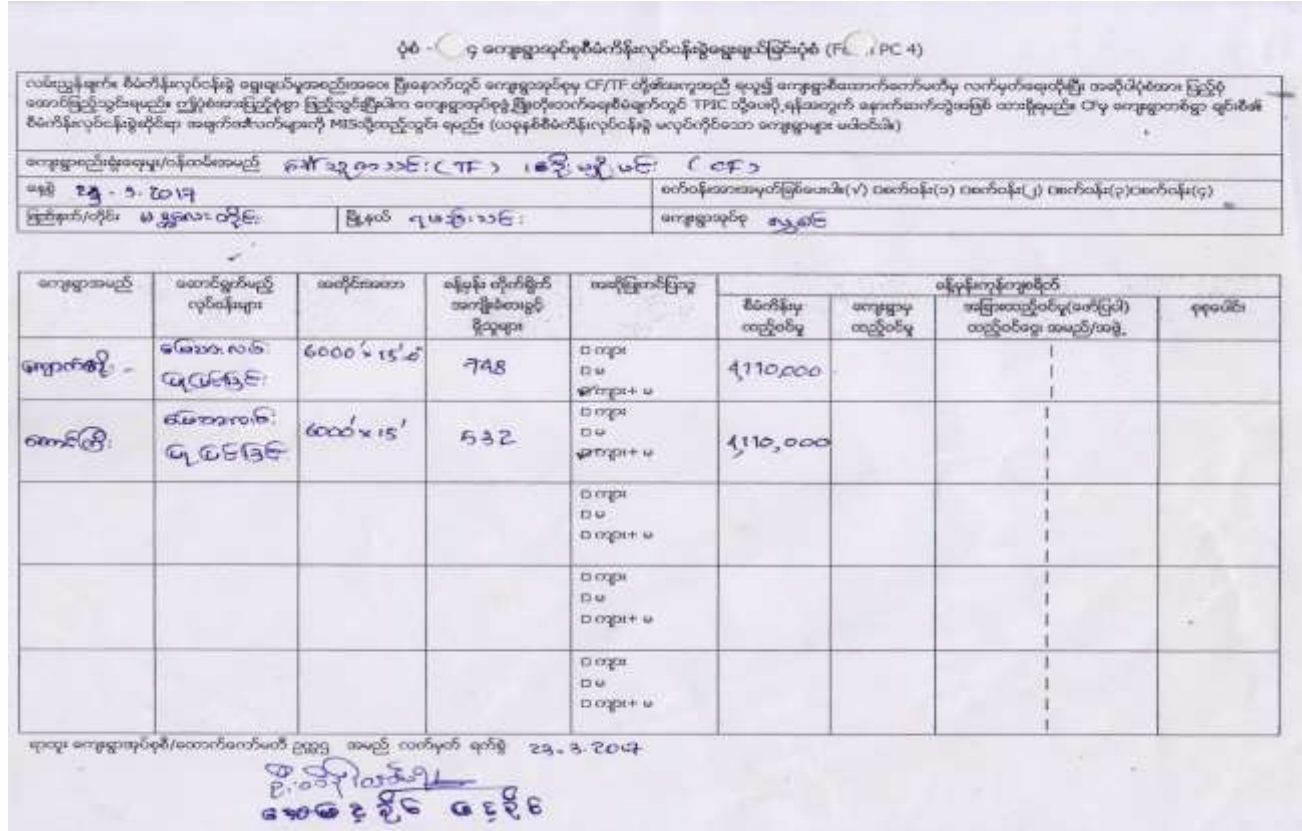 ပုံစံ - ၄ ကျေးရွာအုပ်စုစီမံကိန်းလုပ်ငန်းခွဲရွေးချယ်ခြင်းပုံစံ (F PC 4)
လမ်းညွှန်ချက်။ စီမံကိန်းလုပ်ငန်းခွဲ ရွေးချယ်မှုအစည်းအဝေး ပြီးနောက်တွင် ကျေးရွာအုပ်စုမှ CF/TF တို့၏အကူအညီ ရယူ၍ ကျေးရွာစီထောက်ကော်မတီမှ လက်မှတ်ရေးထိုးပြီး အဆိုပါပုံစံအား ပြည့်စုံ
အောင်ဖြည့်သွင်းရမည်။ ဤပုံစံအားပြည့်စုံစွာ ဖြည့်သွင်းပြီးပါက ကျေးရွာအုပ်စုဖွံ့ဖြိုးတိုးတက်ရေးစီမံချက်တွင် TPIC သို့ပေးပို့ရန်အတွက် နောက်ဆက်တွဲအဖြစ် ထားရှိရမည်။ CFမှ ကျေးရွာတစ်ရွာ ချင်းစီ၏
စီမံကိန်းလုပ်ငန်းခွဲဆိုင်ရာ အချက်အလက်များကို MISသို့ထည့်သွင်း ရမည်။ (ယခုနှစ်စီမံကိန်းလုပ်ငန်းခွဲ မလုပ်ကိုင်သော ကျေးရွာများ မပါဝင်ပါ။)
ကျေးရွာစည်းရုံးရေးမှူး/ဝန်ထမ်းအမည် (TF) (CF)
နေ့စွဲ 23 - 3. 2017 စက်ဝန်းအားအမှတ်ခြစ်ပေးပါ။(√) □စက်ဝန်း(၁) □စက်ဝန်း(၂) □စက်ဝန်း(၃) □စက်ဝန်း(၄)
ပြည်နယ်/တိုင်း မန္တလေးတိုင်း မြို့နယ် ရမည်းသင်း ကျေးရွာအုပ်စု
ကျေးရွာအမည် ဆောင်ရွက်မည့် လုပ်ငန်းများ အတိုင်းအတာ ခန့်မှန်း တိုက်ရိုက် အကျိုးခံစားခွင့် ရှိသူများ အဆိုပြုတင်ပြသူ ခန့်မှန်းကုန်ကျစရိတ်
စီမံကိန်းမှ ထည့်ဝင်မှု ကျေးရွာမှ ထည့်ဝင်မှု အခြားထည့်ဝင်မှု(ဖော်ပြပါ) ထည့်ဝင်ငွေ၊ အမည်/အဖွဲ့ စုစုပေါင်း
မြေသားလမ်း ပြုပြင်ခြင်း 6000' x 15' 748 □ ကျား □ မ □ ကျား+ မ 4,110,000
တောင်ကြီး မြေသားလမ်း ပြုပြင်ခြင်း 6000' x 15' 532 □ ကျား □ မ □ ကျား+ မ 4,110,000
□ ကျား
□ မ
□ ကျား+ မ
□ ကျား
□ မ
□ ကျား+ မ
□ ကျား
□ မ
□ ကျား+ မ
ရာထူး ကျေးရွာအုပ်စုစီ/ထောက်ကော်မတီ ဥက္ကဋ္ဌ အမည် လက်မှတ် ရက်စွဲ 23. 3. 2017